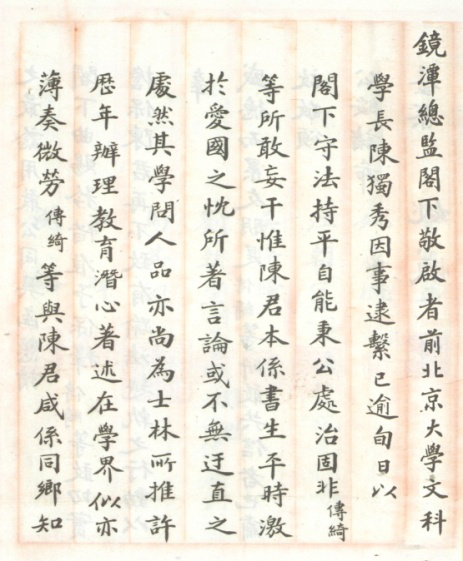 鏡潭總監閣下敬啟者前北京大學文科
學長陳獨秀因事逮繫已逾旬日以
閣下守法持平自能秉公處治固非傳綺
等所敢妄干惟陳君本係書生平時激
於愛國之忱所著言論或不無迂直之
處然其學問人品亦尚為士林所推許
歷年辦理教育潛心著述在學界似亦
薄奏微勞傳綺等與陳君咸係同鄉知